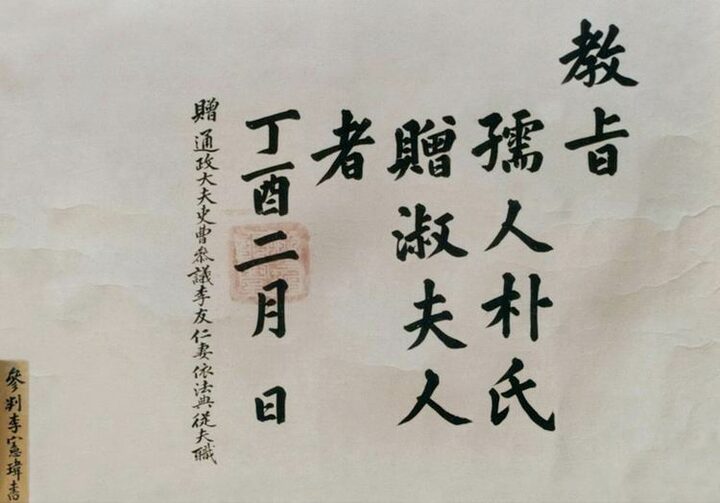 教旨
孺人朴氏
贈淑夫人
者
丁酉二月 日
贈通政大夫吏曹參議李友仁妻依法典從夫職
參判李憲瑋書